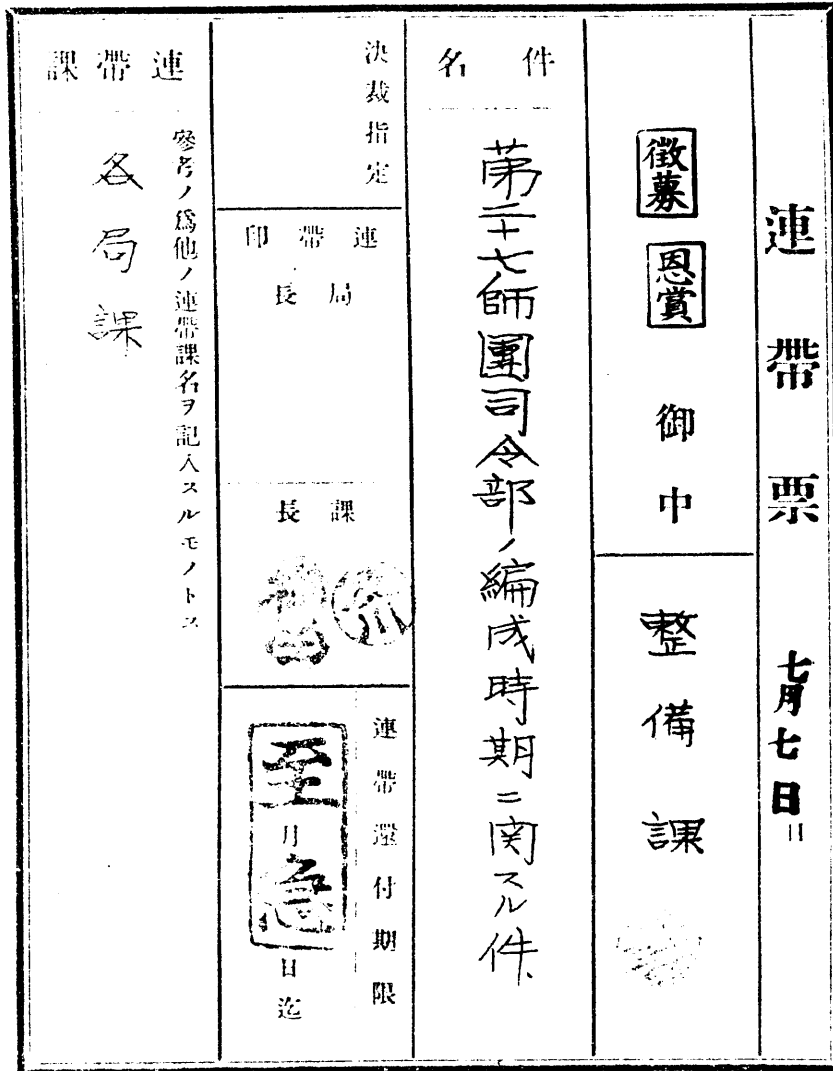 連帶票 七月七日 日
徵募 恩賞 御中
整備課
件名
第二十七師團司令部ノ編成時期ニ関スル件、
決裁指定
連帶印
局長
課長
連帶還付期限
至急
月 日迄
連帶課
參考ノ爲他ノ連帶課名ヲ記入スルモノトス
各局課